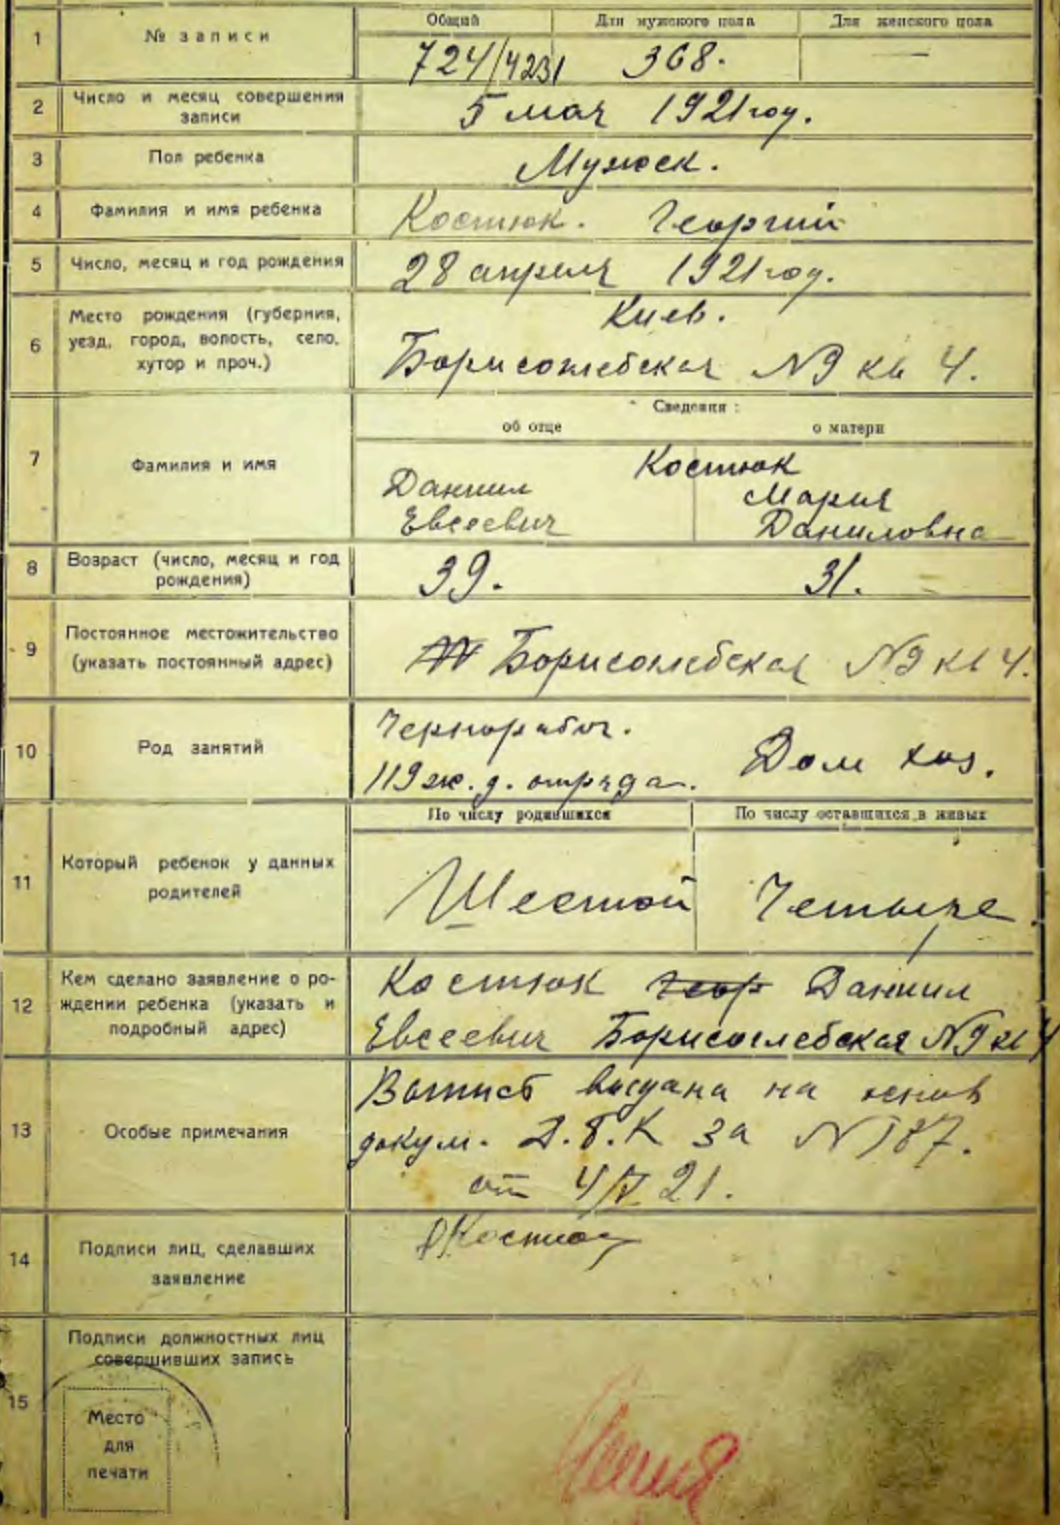 1 № записи Общий Для мужского пола Для женского пола
724/4231 368. —
2 Число и месяц совершения записи 5 мая 1921 году.
3 Пол ребенка Мужск.
4 Фамилия и имя ребенка Костюк. Георгий
5 Число, месяц и год рождения 28 апреля 1921 году.
6 Место рождения (губерния,
уезд, город, волость, село,
хутор и проч.)
Киев.
Борисоглебская №9 кв 4.
Сведения:
об отце о матери
7 Фамилия и имя
Костюк
Даниил Мария
Евсеевич Даниловна
8 Возраст (число, месяц и год
рождения)
39. 31.
9 Постоянное местожительство
(указать постоянный адрес)
Борисоглебская №9 кв 4.
10 Род занятий
Чернорабоч.
119 ж.д. отряда. Дом хоз.
По числу родившихся По числу оставшихся в живых
11 Который ребенок у данных
родителей
Шестой Четыре
12 Кем сделано заявление о ро-
ждении ребенка (указать и
подробный адрес)
Костюк Геор Даниил
Евсеевич Борисоглебская №9 кв 4
13 Особые примечания
выдана на основ
докум. за №187.
от 4/V 21.
14 Подписи лиц, сделавших
заявление
Костюк
15 Подписи должностных лиц
совершивших запись
Место
для
печати